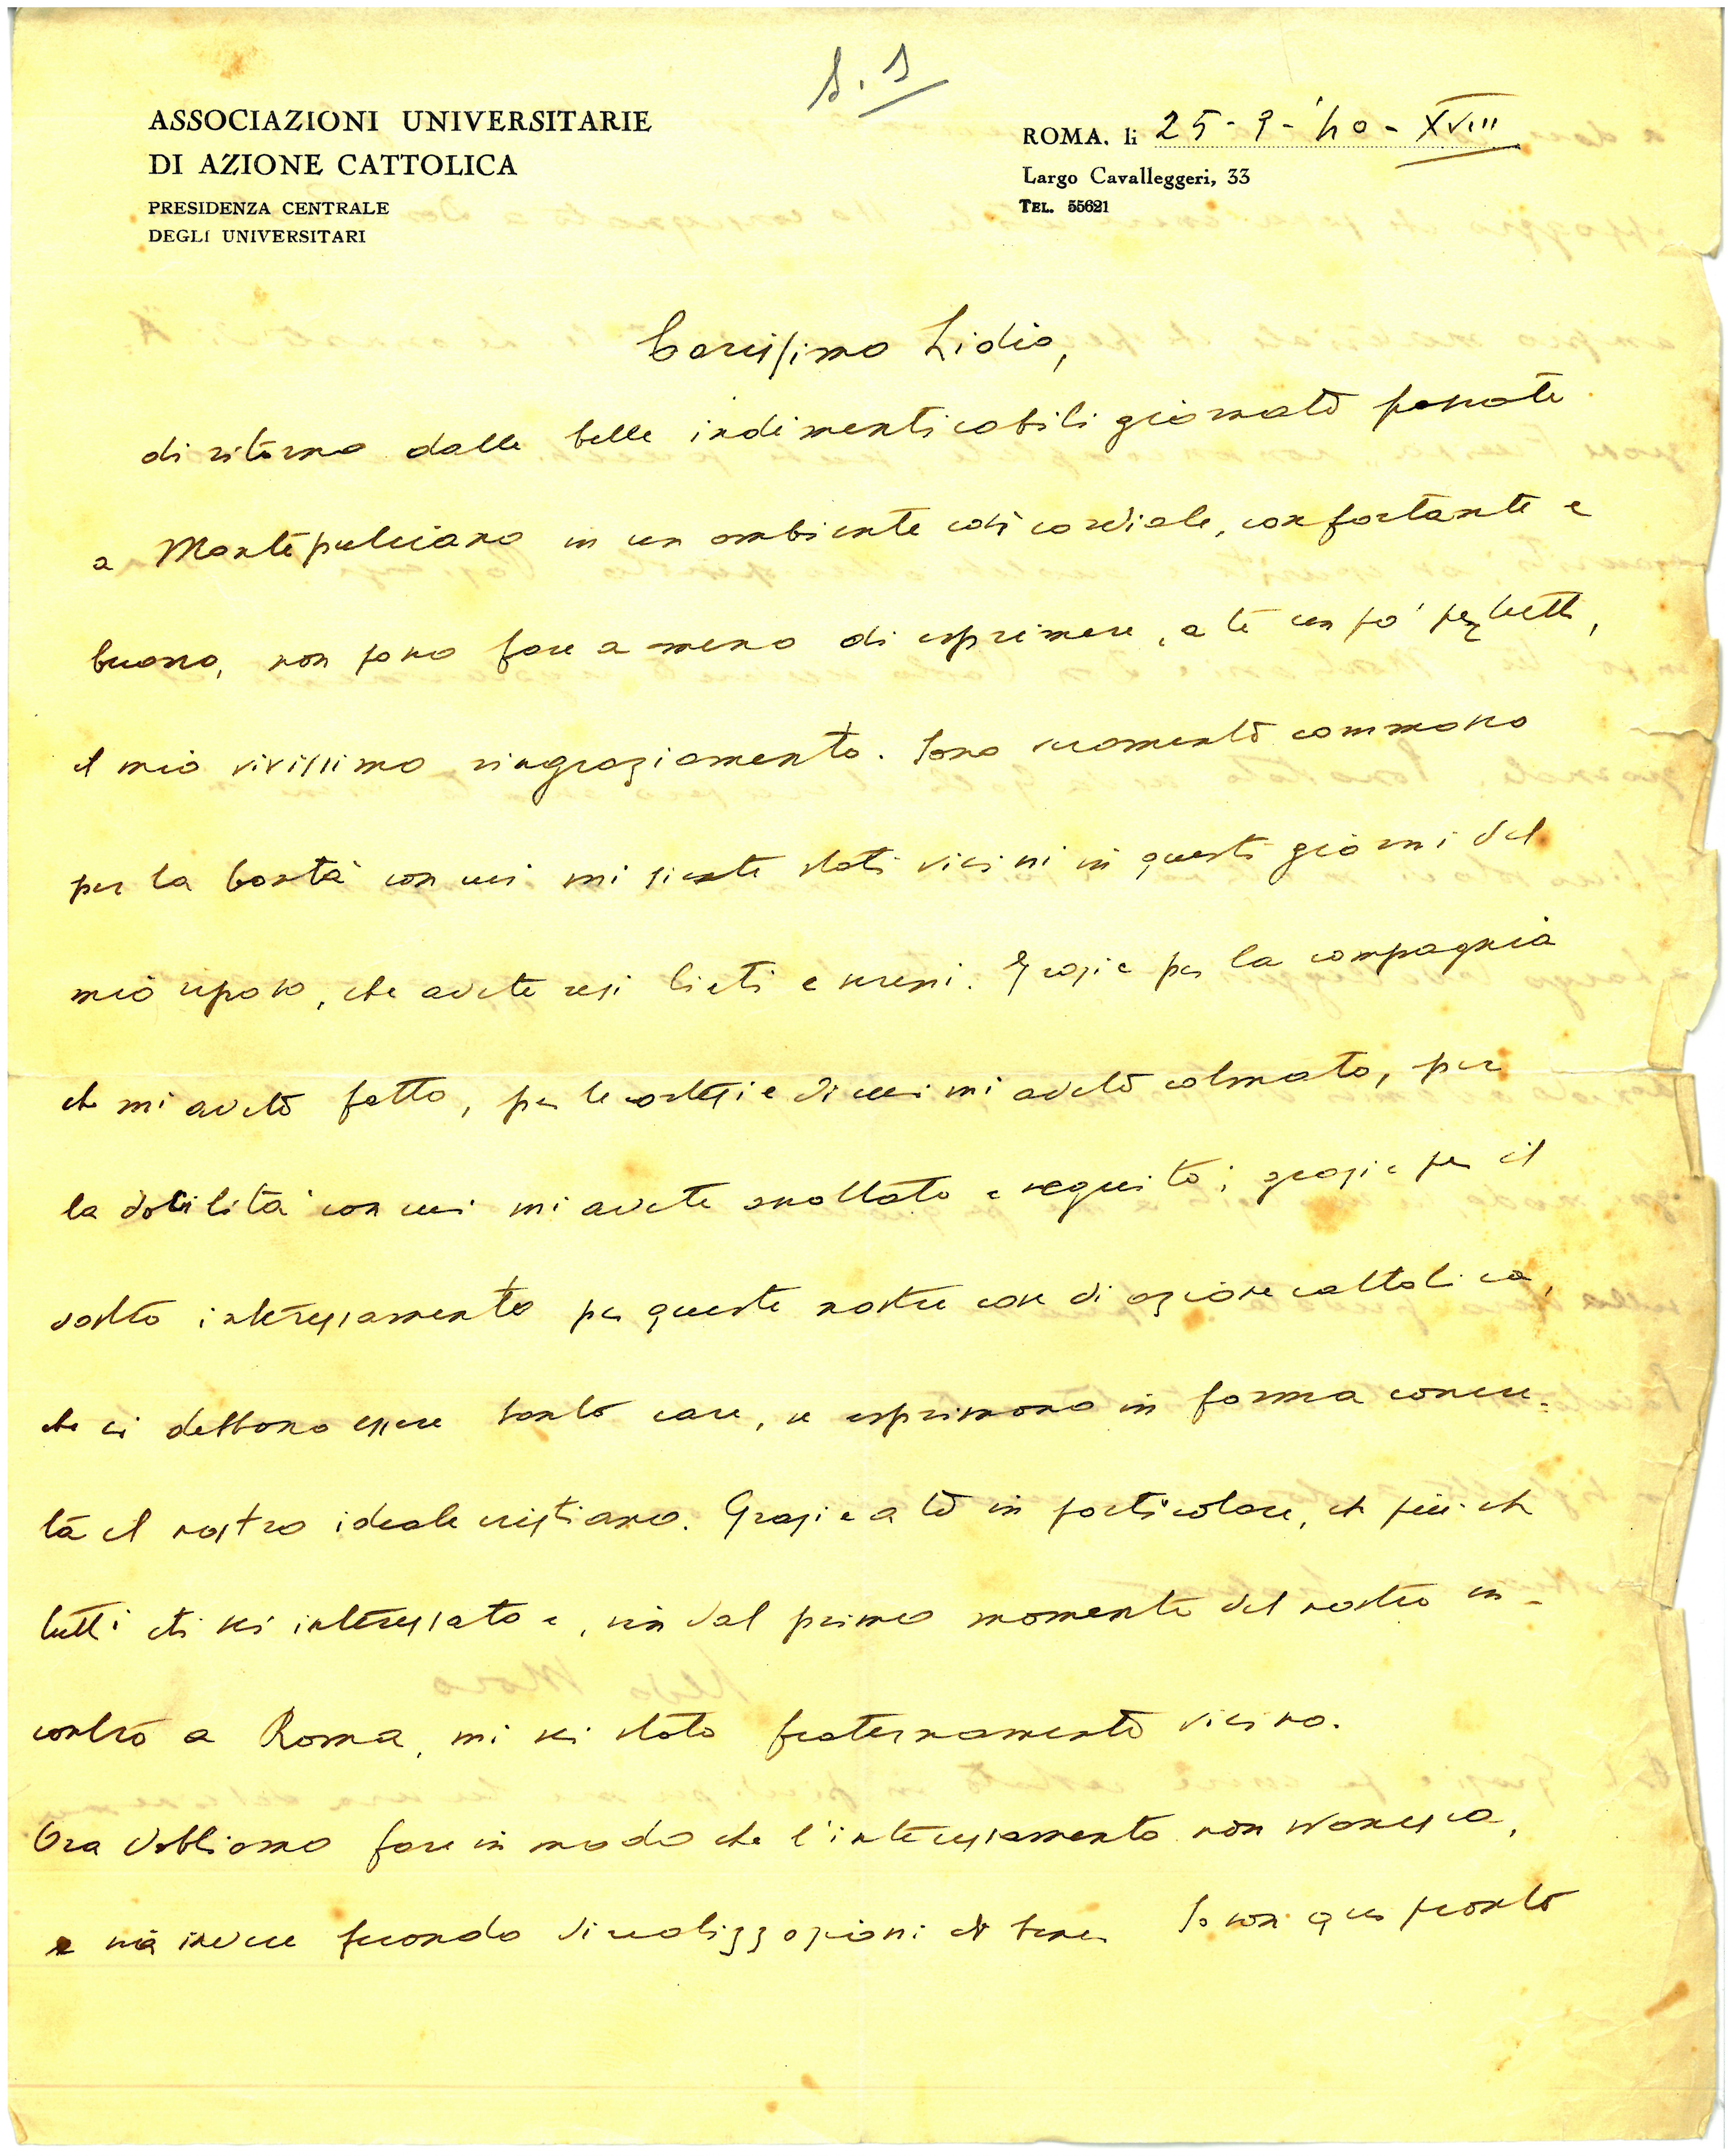 S. 1
ASSOCIAZIONI UNIVERSITARIE
DI AZIONE CATTOLICA
PRESIDENZA CENTRALE
DEGLI UNIVERSITARI
ROMA, li 25-9-'40-XVIII
Largo Cavalleggeri, 33
TEL. 55621
Carissimo Lidio,
di ritorno dalle belle indimenticabili giornate passate
a Montepulciano in un ambiente così cordiale, confortante e
buono, non posso fare a meno di esprimere, a te un po' per tutti,
il mio vivissimo ringraziamento. Sono veramente commosso
per la bontà con cui mi siete stati vicini in questi giorni del
mio riposo, che avete resi lieti e sereni. Grazie per la compagnia
che mi avete fatto, per le cortesie di cui mi avete colmato, per
la docilità con cui mi avete ascoltato e seguito; grazie per il
vostro interessamento per queste nostre cose di azione cattolica,
che ci debbono essere tanto care, se esprimono in forma concre=
ta il nostro ideale cristiano. Grazie a te in particolare, che più che
tutti ti sei interessato e, sin dal primo momento del nostro in-
contro a Roma, mi sei stato fraternamente vicino.
Ora dobbiamo fare in modo che l'interessamento non svanisca,
e sia invece fecondo di realizzazioni di bene. Io son qua pronto